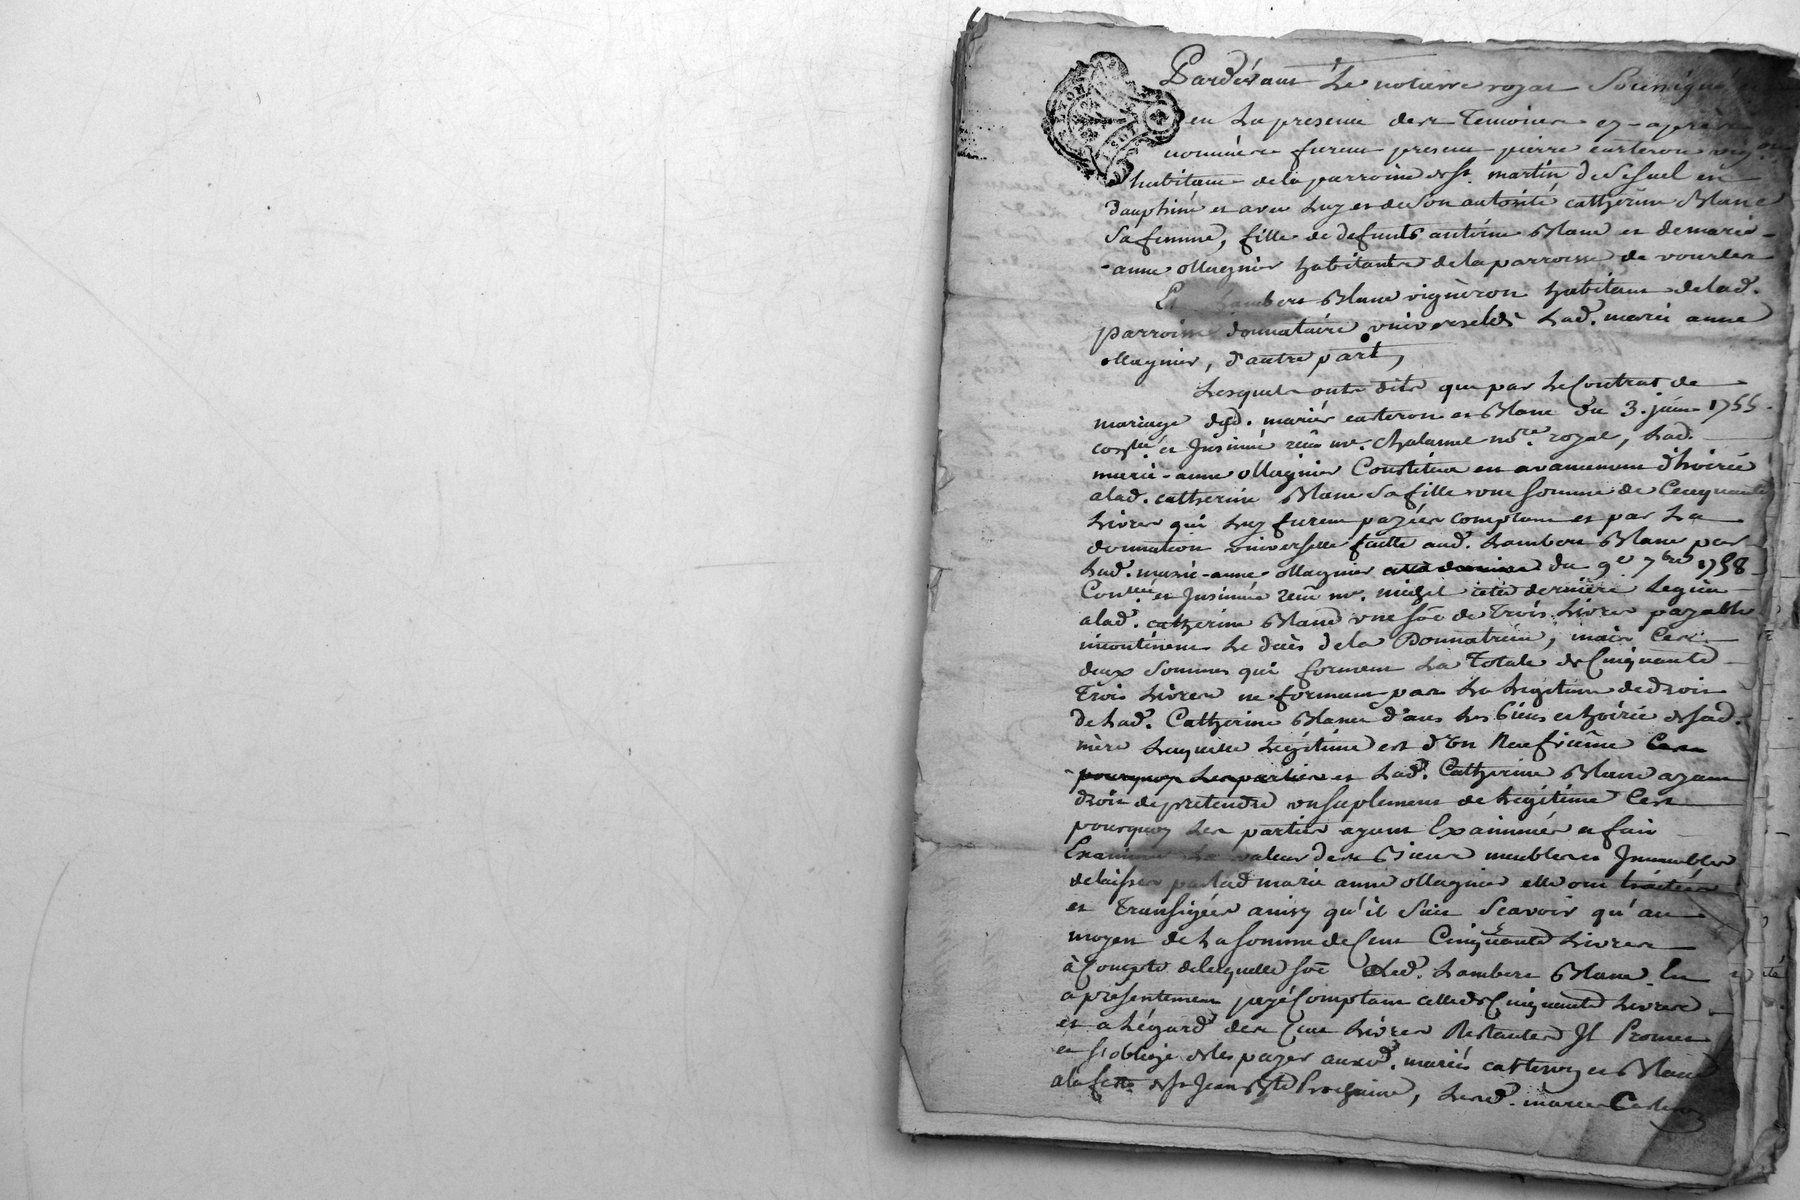 Pardevant Le notaire royal Soussigné
en La presence des Temoins cy-après
nommés furent present pierre carteron
habitant de la parroisse de St. martin De en
Dauphiné et avec Luy et de Son autorité catherine Blanc
Sa femme, fille de defunts antoine Blanc et de marie-
-anne Magnier habitants de la parroisse de vourles
Et Lambert Blanc vigneron habitant de lad.
parroisse donnataire universel de Lad. marie anne
Magnier, d'autre part,
Lesquels ont dits que par Le Contrat de
mariage desd. mariés carteron et Blanc du 3. juin 1755.
et Jnsinué reçu me. Chalamel nore. royal, Lad.
marie-anne Magnier Constitua en avancement d'hoirie
a lad. catherine Blanc Sa fille une Somme de Cinquante
Livres qui Luy furent payées comptant et par La
donnation universelle faitte aud. Lambert Blanc par
Lad. marie-anne Magnier du 9e 7bre 1758
et Jnsinuée reçu me. michel cette derniere Legua
a lad. catherine Blanc une Soe de Trois Livres payable
incontinent Le deces de la Donnatrice, mais Ces
deux Sommes qui forment La Totale de Cinquante
Trois Livres ne forment pas La Legitime de droit
de Lad. Catherine Blanc dans Les biens et hoirie de Sad.
mere Laquelle Legitime est d'un Neufvième Cest
pourquoy Les parties et Lad. Catherine Blanc ayant
droit de pretendre un Suplement de Legitime Cest
pourquoy Les parties ayant Examinées et fait
Examiner La valeur des Biens meubles et Jmmeubles
delaissés par lad marie anne Magnier elle ont traitées
et Transigées ainsy qu'il Suit Scavoir qu'au
moyen de La Somme de Cent Cinquante Livres
à Compte de laquelle Soe Led. Lambert Blanc en
a présentement payé Comptant celle de Cinquante Livres
et a Légard des Cent Livres Restantes Jl Promet
et S'oblige de les payer auxd. mariés carteron et Blanc
a la fette de St Jean Bte Prochaine, Lesd. mariés Carteron